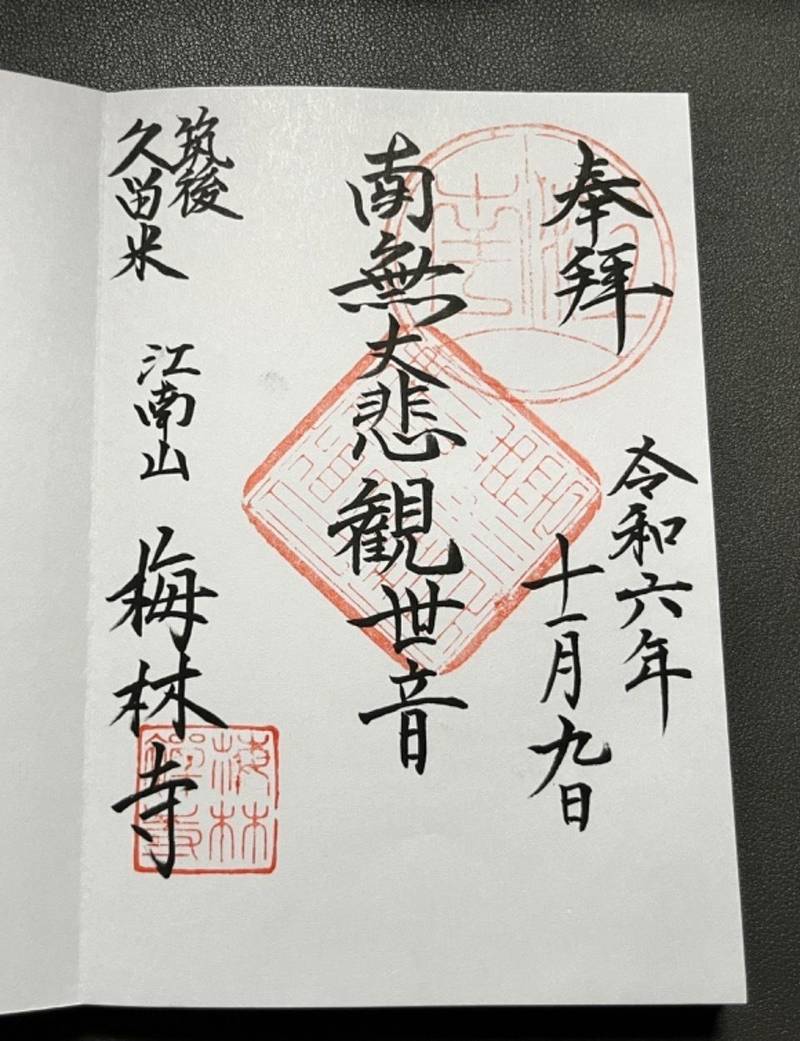 奉拝
令和六年
十一月九日
南無大悲観世音
筑後
久留米
江南山
梅林寺
梅林
禅寺